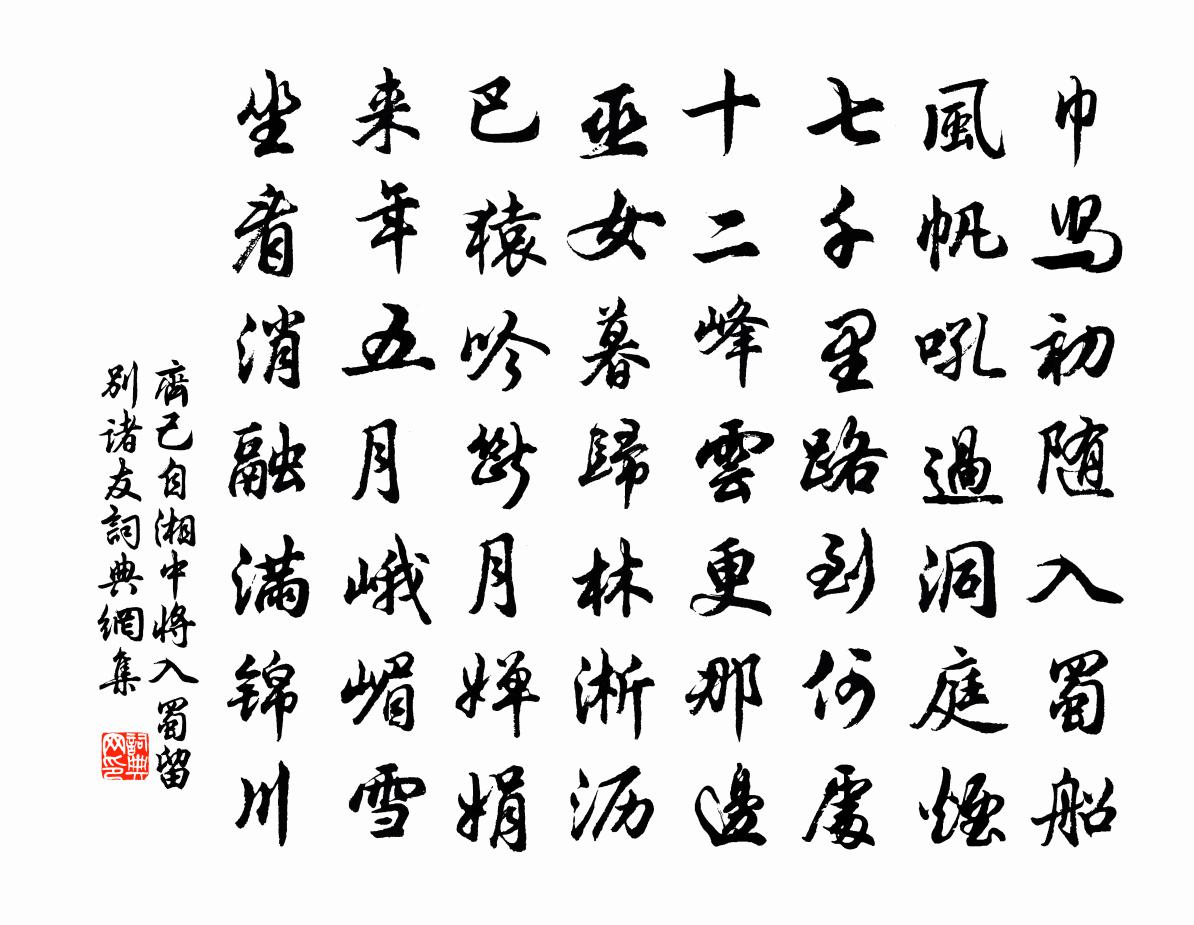 巾舄初随入蜀船
風帆吼過洞庭煙
七千里路到何處
十二峰雲更那邊
巫女暮歸林淅沥
巴猿吟斷月嬋娟
来年五月峨嵋雪
坐看消融满锦川
齊己自湘中将入蜀留
别諸友詞典網集
詞典网印